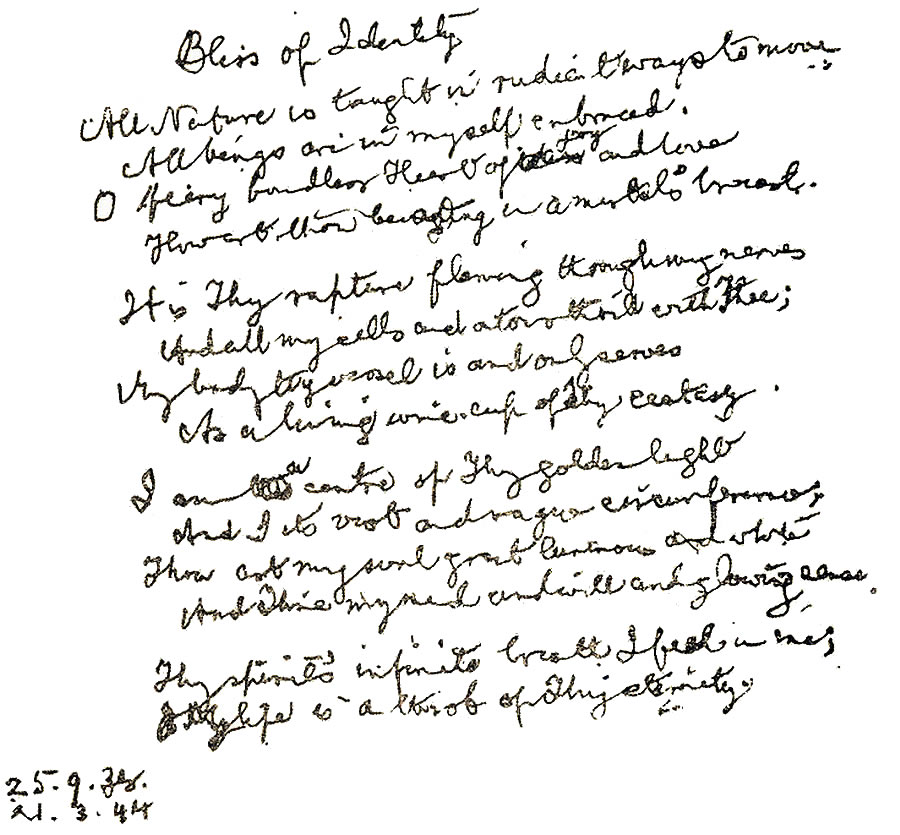 Bliss of Identity
All Nature is taught in radiant ways to move
All beings are in myself embraced.
O fiery boundless Heart of joy and love
How art thou beating in a mortal's breast.
It is Thy rapture flaming through my nerves
And all my cells and atoms thrill with Thee;
My body thy vessel is and only serves
As a living wine-cup of Thy ecstasy.
I am a centre of Thy golden light
And I its vast and vague circumference;
Thou art my soul great luminous and white
And Thine my mind and will and glowing sense.
Thy spirit's infinite breath I feel in me;
My life is a throb of Thy eternity.
25.9.38.
21.3.44